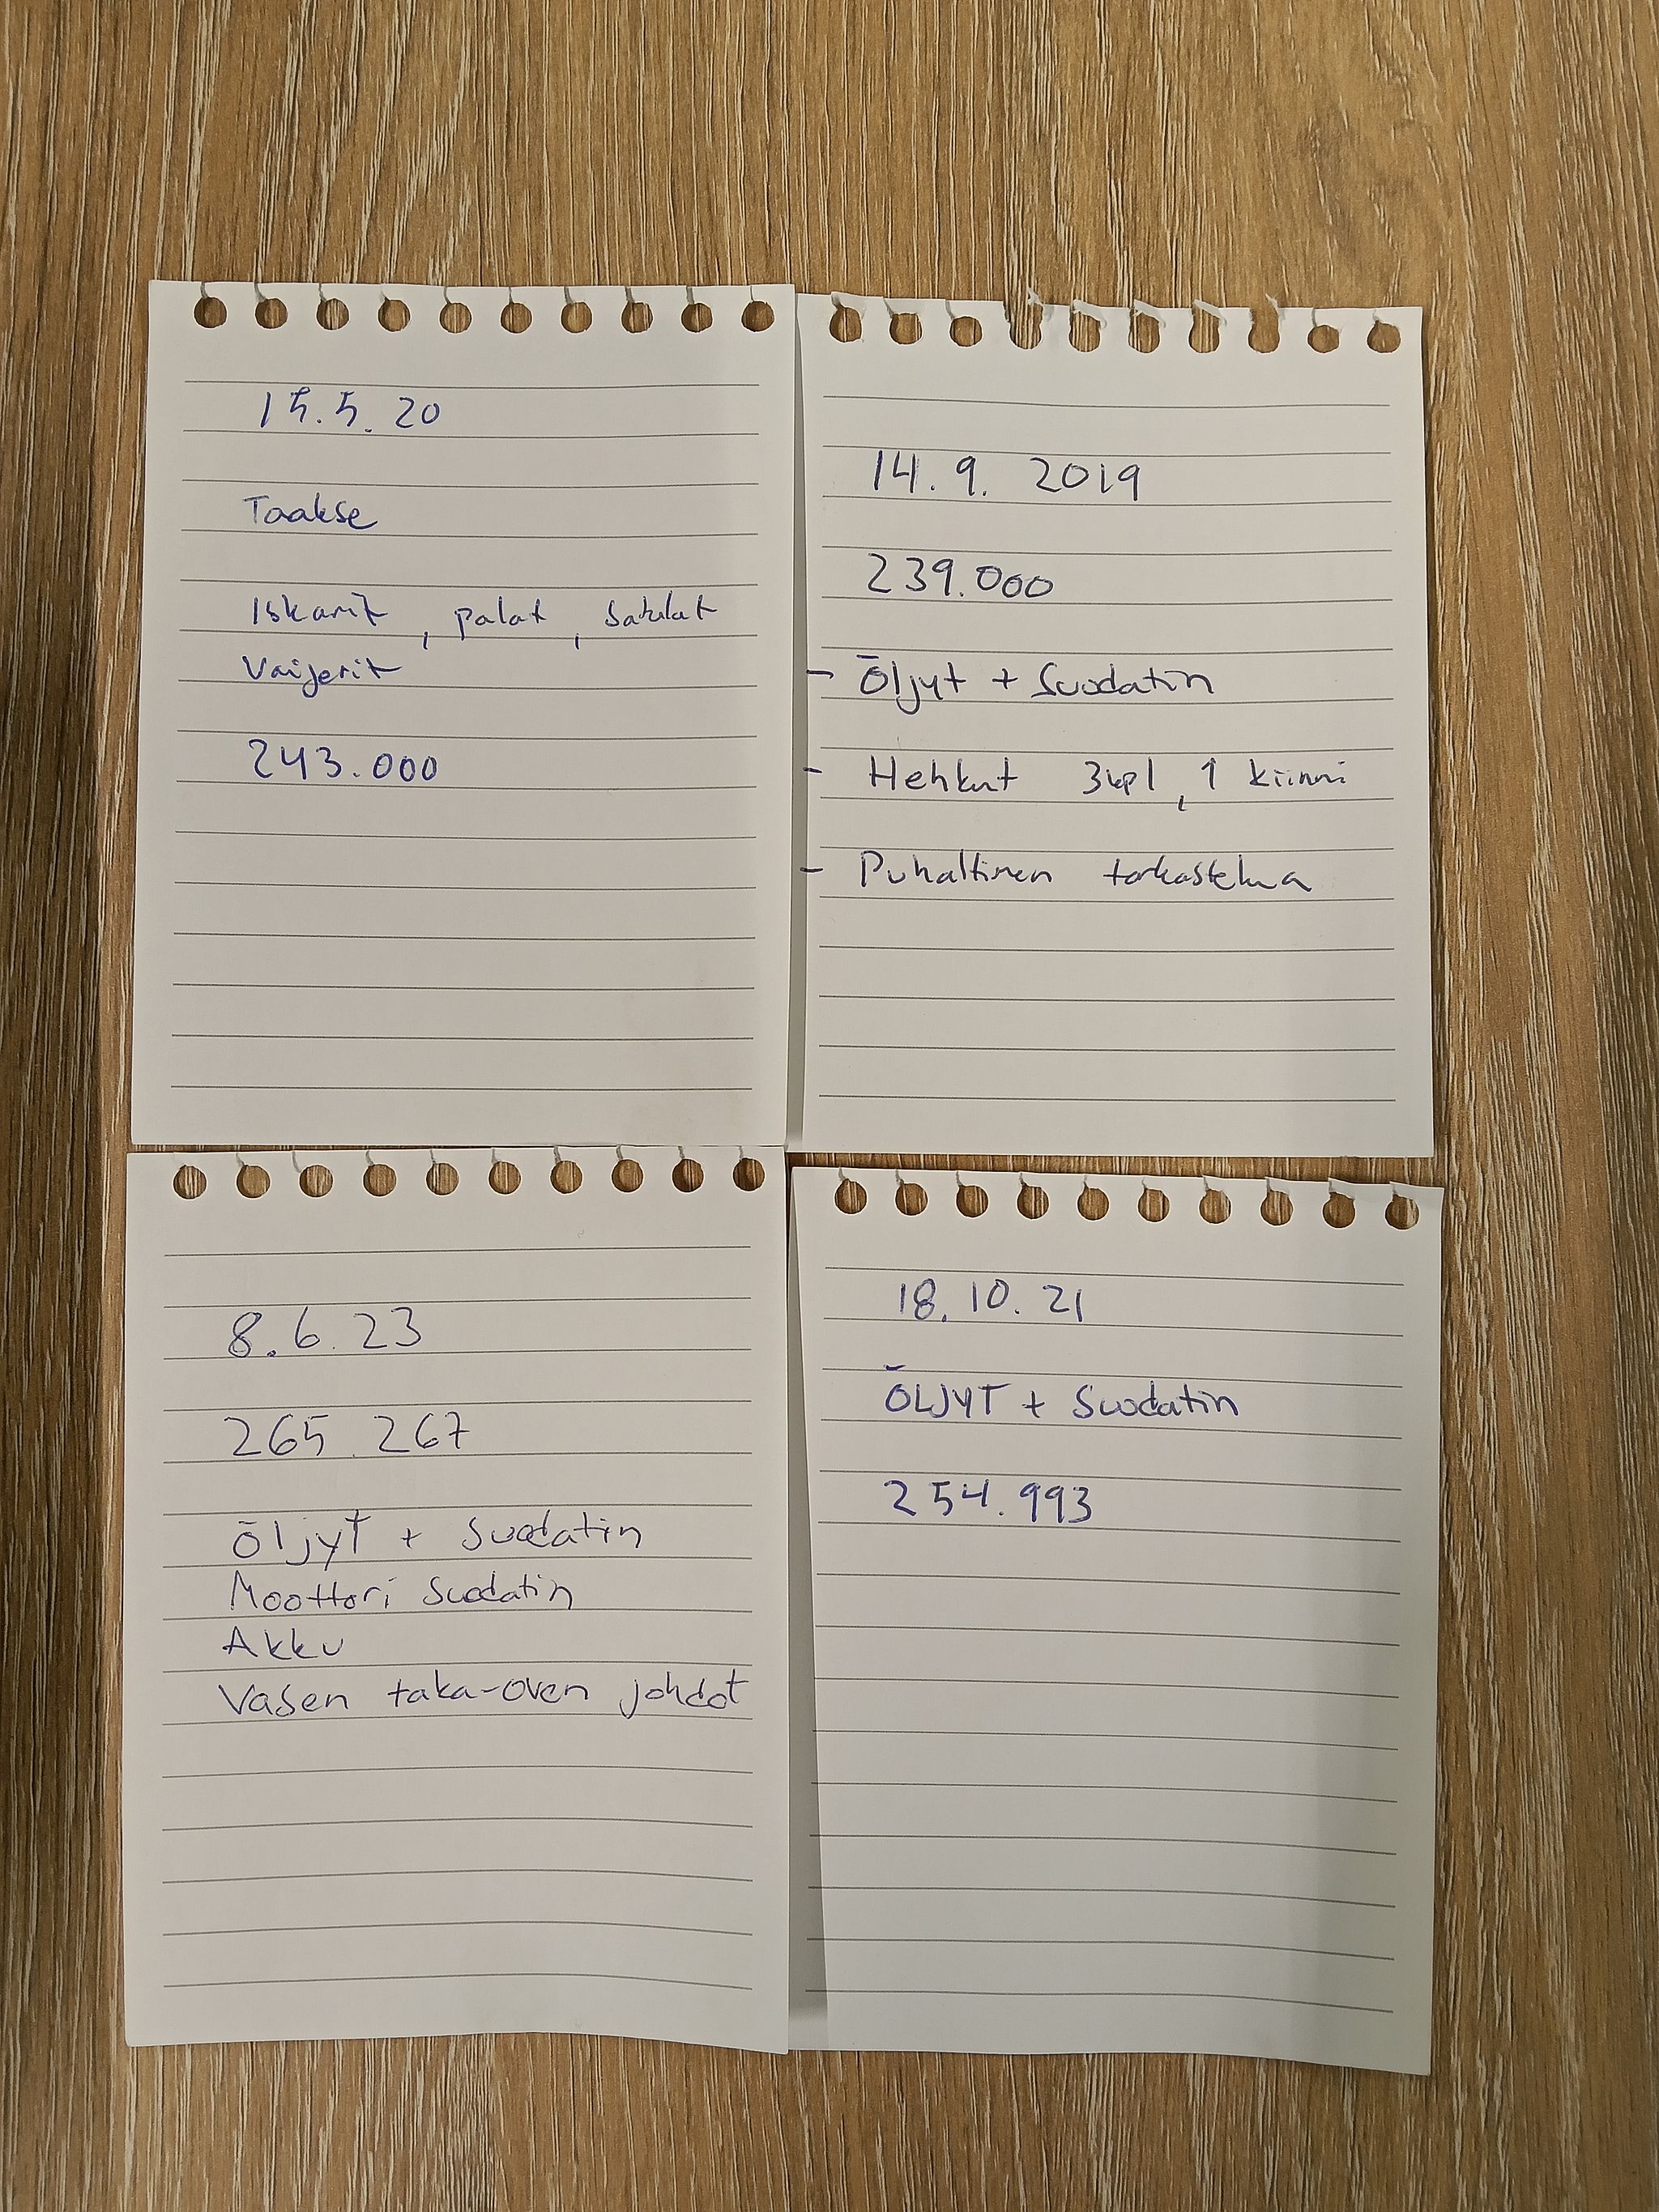 15.5.20
Taakse
Iskarit, palat, satulat
Vaijerit
243.000
14.9.2019
239.000
- Öljyt + Suodatin
- Hehkut 3kpl, 1 kiinni
- Puhaltimen tarkastelua
8.6.23
265.267
Öljyt + Suodatin
Moottori Suodatin
Akku
Vasen taka-oven johdot
18.10.21
ÖLJYT + Suodatin
254.993